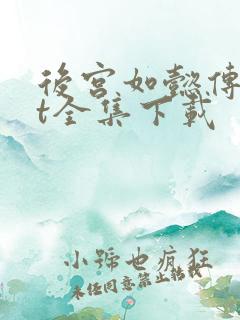 後宮如懿傳
t全集下載
小號也瘋狂
未经同意禁止转载